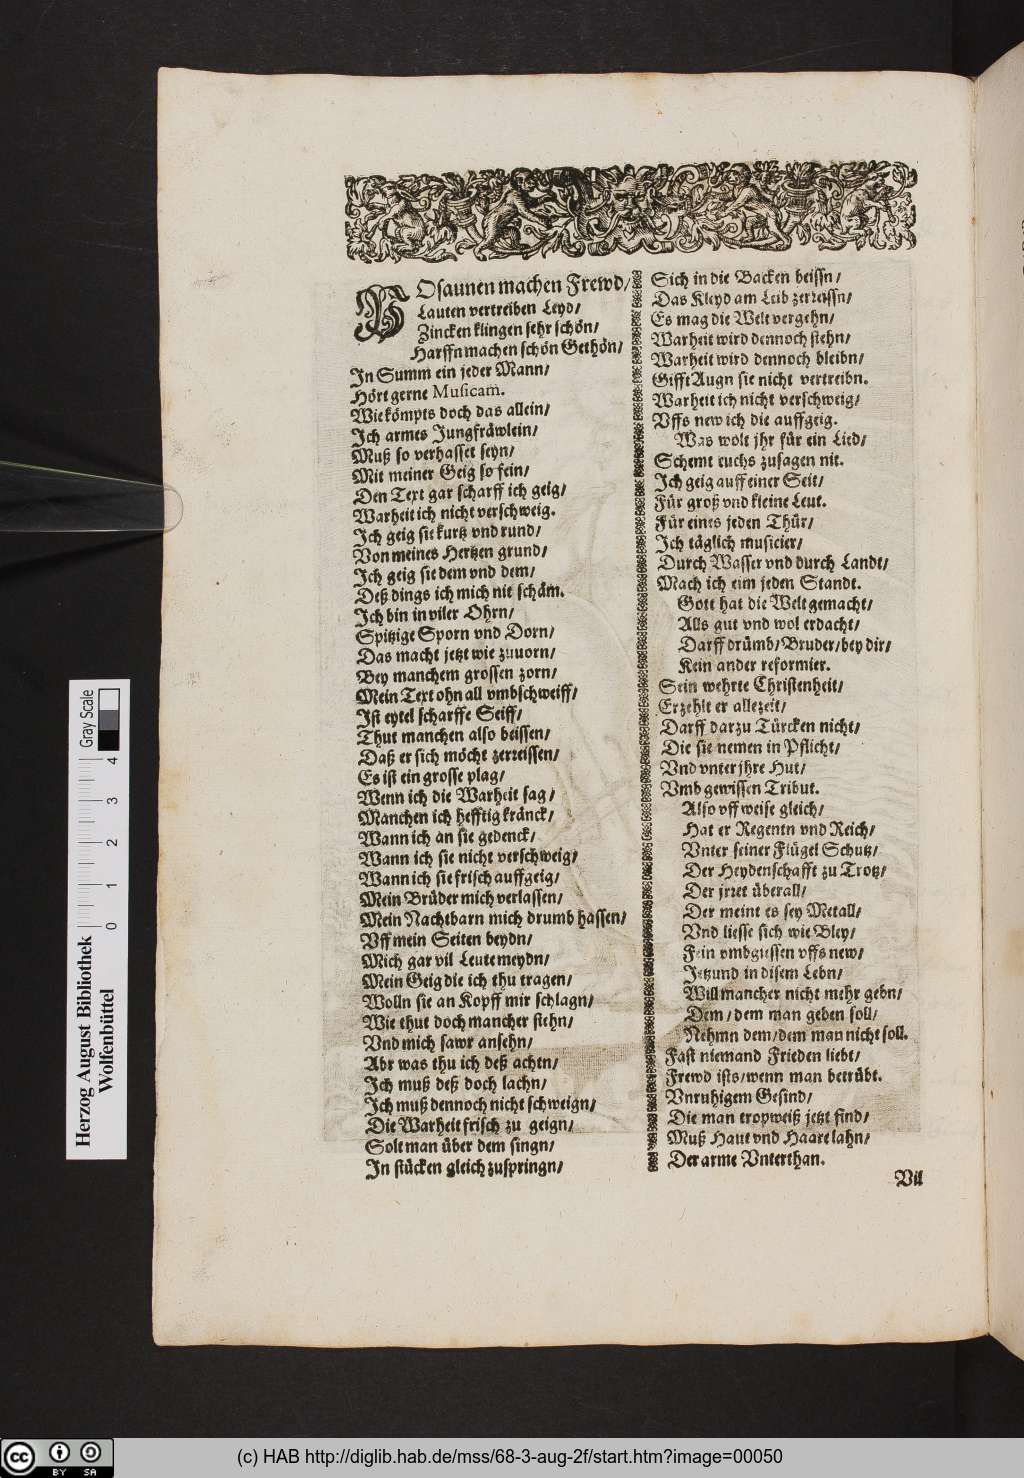 POsaunen machen Frewd/
Lauten vertreiben Leyd/
Zincken klingen sehr schön/
Harffn machen schön Gethön/
In Summ ein jeder Mann/
Hört gerne Musicam.
Wie kömpts doch das allein/
Ich armes Jungfräwlein/
Muß so verhasset seyn/
Mit meiner Geig so fein/
Den Text gar scharff ich geig/
Warheit ich nicht verschweig.
Ich geig sie kurtz vnd rund/
Von meines Hertzen grund/
Ich geig sie dem vnd dem/
Deß dings ich mich nit schäm.
Ich bin in viler Ohrn/
Spitzige Sporn vnd Dorn/
Das macht jetzt wie zuuorn/
Bey manchem grossen zorn/
Mein Text ohn all vmbschweiff/
Ist eytel scharffe Seiff/
Thut manchen also beissen/
Daß er sich möcht zerreissen/
Es ist ein grosse plag/
Wenn ich die Warheit sag/
Manchen ich hefftig kränck/
Wann ich an sie gedenck/
Wann ich sie nicht verschweig/
Wann ich sie frisch auffgeig/
Mein Brüder mich verlassen/
Mein Nachtbarn mich drumb hassen/
Vff mein Seiten beydn/
Mich gar vil Leute meydn/
Mein Geig die ich thu tragen/
Wolln sie an Kopff mir schlagn/
Wie thut doch mancher stehn/
Vnd mich sawr ansehn/
Abr was thu ich deß achtn/
Ich muß deß doch lachn/
Ich muß dennoch nicht schweign/
Die Warheit frisch zu geign/
Solt man über dem singn/
In stücken gleich zuspringn/
Sich in die Backen beissn/
Das Kleyd am Leib zerreissn/
Es mag die Welt vergehn/
Warheit wird dennoch stehn/
Warheit wird dennoch bleibn/
Gifft Augn sie nicht vertreibn.
Warheit ich nicht verschweig/
Vffs new ich die auffgeig.
Was wolt jhr für ein Lied/
Schemt euchs zusagen nit.
Ich geig auff einer Seit/
Für groß vnd kleine Leut.
Für eines jeden Thür/
Ich täglich musicier/
Durch Wasser vnd durch Landt/
Mach ich eim jeden Standt.
Gott hat die Welt gemacht/
Alls gut vnd wol erdacht/
Darff drümb/Bruder/bey dir/
Kein ander reformier.
Sein wehrte Christenheit/
Erzehlt er allezeit/
Darff darzu Türcken nicht/
Die sie nemen in Pflicht/
Vnd vnter jhre Hut/
Vmb gewissen Tribut.
Also vff weise gleich/
Hat er Regentn vnd Reich/
Vnter seiner Flügel Schutz/
Der Heydenschafft zu Trotz/
Der jrret überall/
Der meint es sey Metall/
Vnd liesse sich wie Bley/
Fein vmbgiessen vffs new/
Jetzund in disem Lebn/
Will mancher nicht mehr gebn/
Dem/dem man geben soll/
Nehmn dem/dem man nicht soll.
Fast niemand Frieden liebt/
Frewd ists/wenn man betrübt.
Vnruhigem Gesind/
Die man tropweiß jetzt find/
Muß Haut vnd Haare lahn/
Der arme Vnterthan.
Vil
Herzog August Bibliothek
Wolfenbüttel
0 1 2 3 4
Gray Scale
cc BY SA
(c) HAB http://diglib.hab.de/mss/68-3-aug-2f/start.htm?image=00050